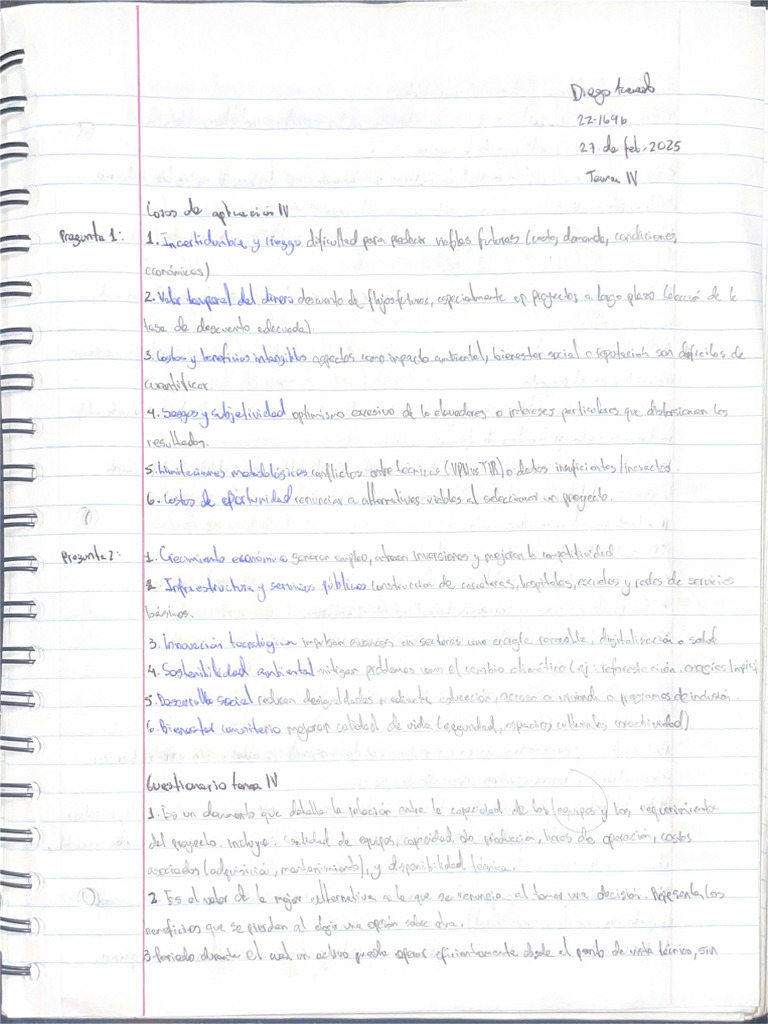 Diego
22-1696
27 de feb. 2025
Tarea IV
Casos de aplicación IV
Pregunta 1: 1. Incertidumbre y riesgo dificultad para predecir viables futuras (costo, demanda, condiciones
económicas)
2. Valor temporal del dinero descuento de flujos futuros, especialmente en proyectos a largo plazo (elección de la
tasa de descuento adecuada)
3. Costos y beneficios intangibles aspectos como impacto ambiental, bienestar social o reputación son difíciles de
cuantificar
4. Sesgos y subjetividad optimismo excesivo de lo evaluadores o intereses particulares que distorsionan los
resultados.
5. Limitaciones metodológicas conflictos entre técnicas (VPN vs TIR) o datos insuficientes/inexactos.
6. Costos de oportunidad renunciar a alternativas viables al seleccionar un proyecto.
Pregunta 2: 1. Crecimiento económico generan empleo, atraen inversiones y mejoran la competitividad
2. Infraestructura y servicios públicos construcción de carreteras, hospitales, escuelas y redes de servicios
básicos.
3. Innovación tecnológica impulsan avances en sectores como energía renovable, digitalización o salud
4. Sostenibilidad ambiental mitigan problemas como el cambio climático (ej: reforestación, energías limpias)
5. Desarrollo social reducen desigualdades mediante educación, acceso a vivienda o programas de inclusión.
6. Bienestar comunitario mejoran calidad de vida (seguridad, espacios culturales, conectividad)
Cuestionario tarea IV
1. Es un documento que detalla la relación entre la capacidad de los equipos y los requerimientos
del proyecto. Incluye: cantidad de equipos, capacidad de producción, horas de operación, costos
asociados (adquisición, mantenimiento), y disponibilidad técnica.
2. Es el valor de la mejor alternativa a la que se renuncia al tomar una decisión. Representa los
beneficios que se pierden al elegir una opción sobre otra.
3. Periodo durante el cual un activo puede operar eficientemente desde el punto de vista técnico, sin